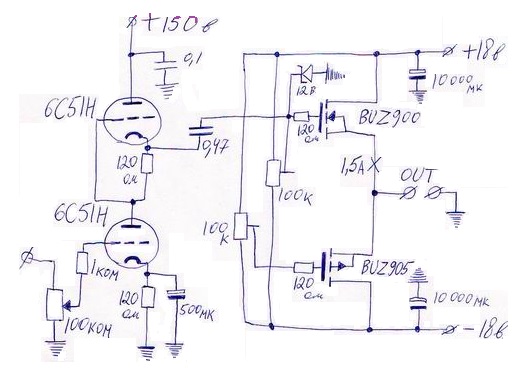 +150в
0,1
+18в
10000 мк
12в
6С51Н
BUZ900
120 ом
0,47
120 ом
1,5А X
OUT
100к
6С51Н
100 к
BUZ905
1ком
120 ом
10000мк
120 ом
500мк
100ком
-18в